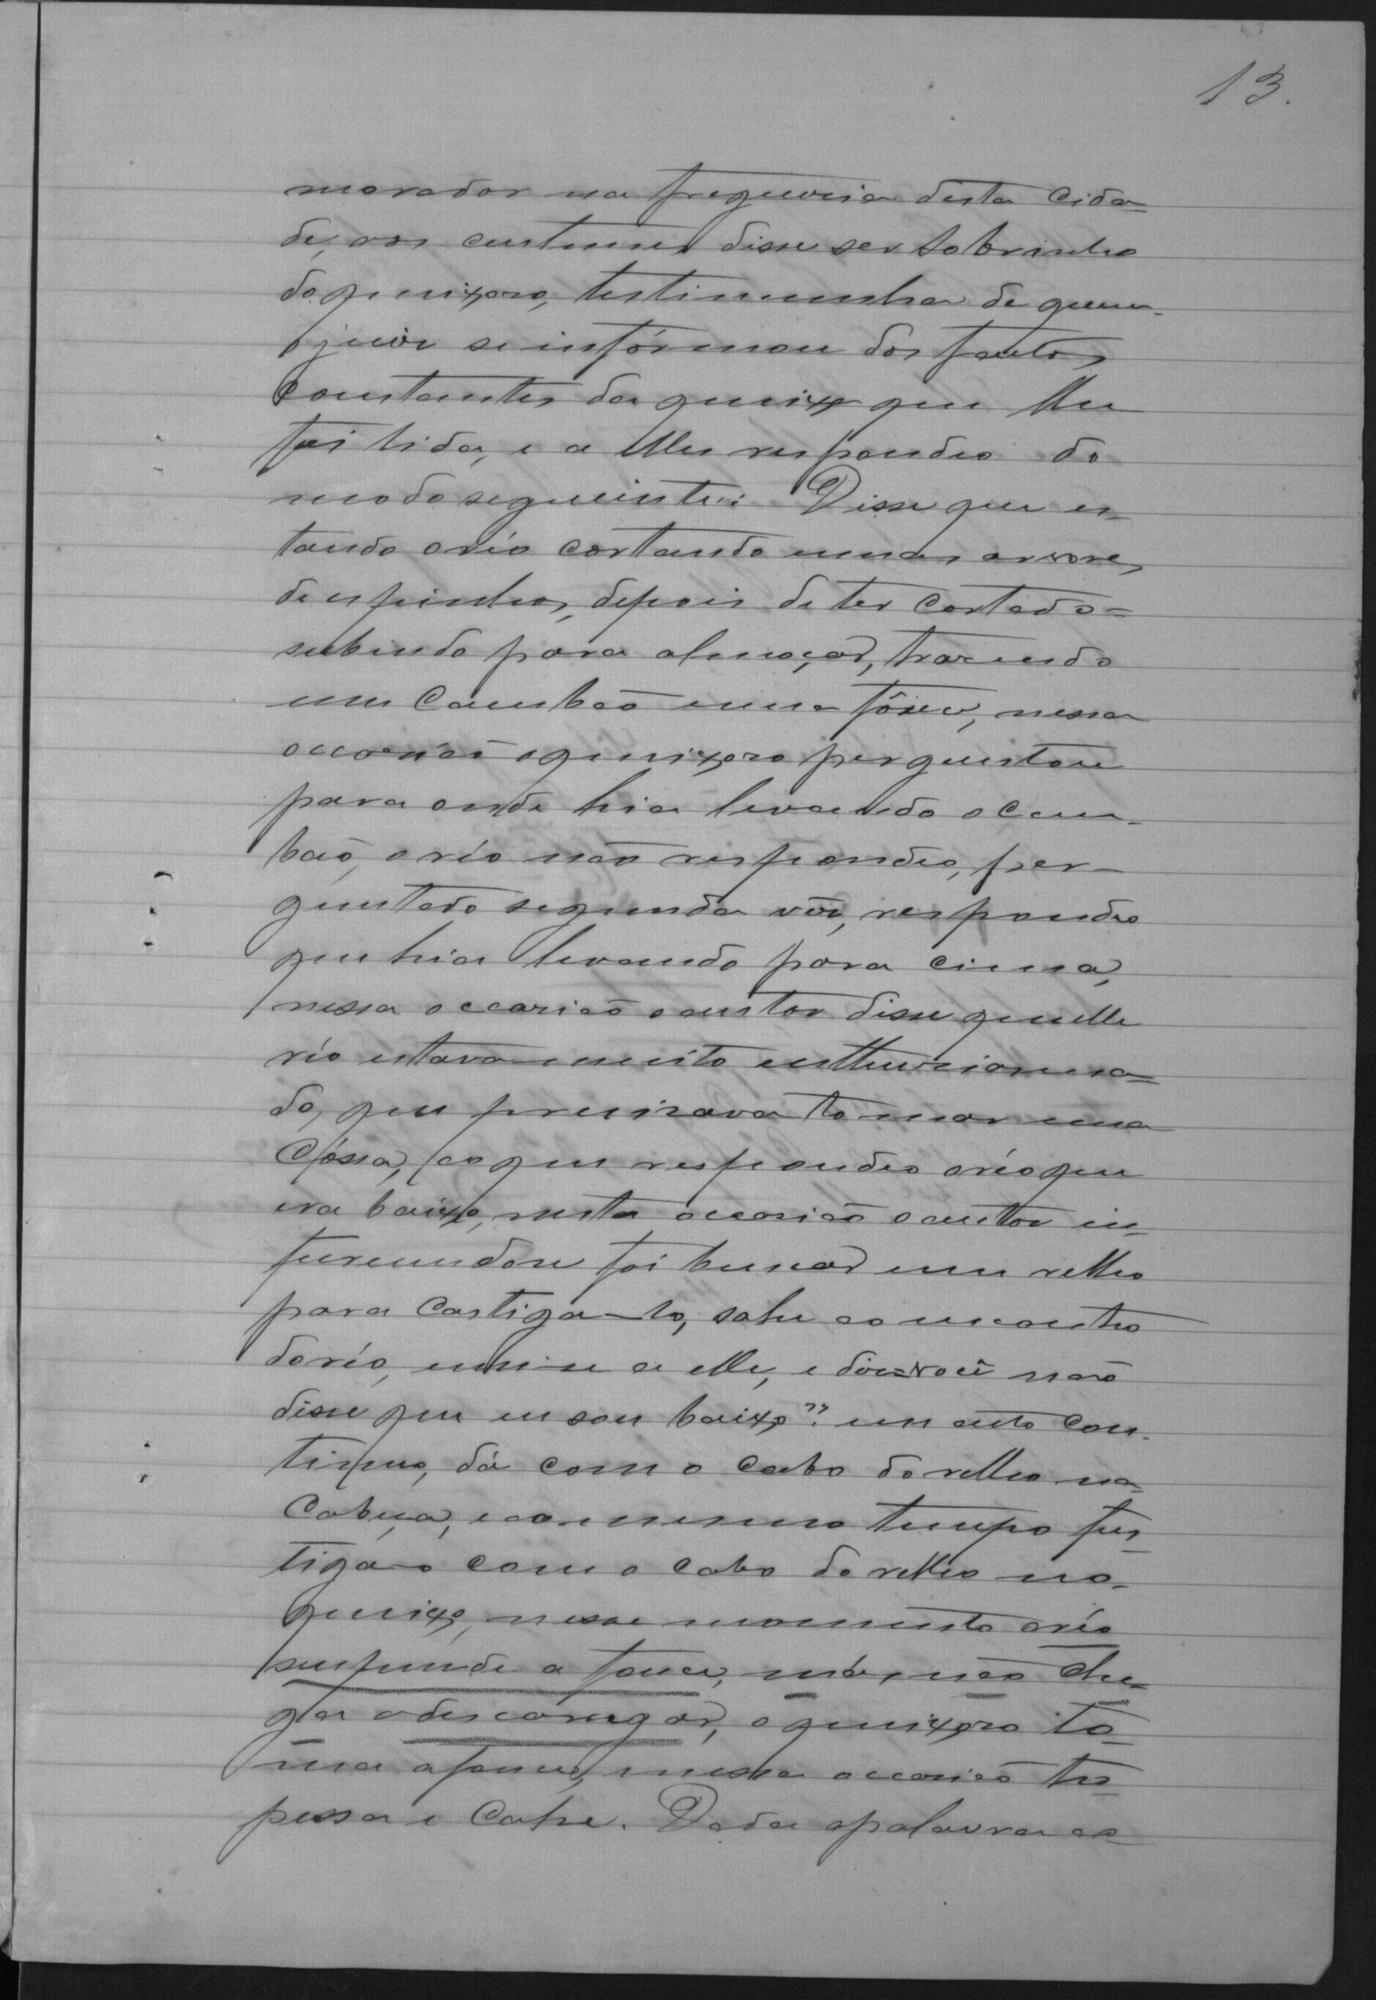 13.
morador na freguesia desta Cida-
de, aos custumes disse ser sobrinho
do queixoso, testimunha de quem
o juiz se infórmou dos factos
Constantes da queixa que lhe
foi lida, e a elles respondeo do
modo segueinte: Disse que es-
tando o réo cortando umas arvores
de espinhos, depois de ter Cortado=
subindo para almoçar, trazendo
um Cambão numa fôice, nessa
occasião o queixoso perguntou
para onde hia levando o cam-
baõ, o réo não respondeo, per-
guntado segunda vêz, respondeo
que hia levando para cima,
nessa occasiaõ o autor disse que elle
réo estava muito enthuziasma-
do, que precisava tomar uma
Cóssa, ao que respondeo o réo que
era baixo, nesta occasiaõ o autor in-
furecendose foi buscar um relho
para Castiga-lo, sahe ao encontro
do réo, une-se a elle, e diz=você não
disse que eu sou baixo"? em acto con-
tinuo, dá com o Cabo do relho na
Cabeça, e ao mesmo tempo fus-
tiga-o com o cabo do relho no
queixo, nesse momento o réo
suspende a fouce, máz não che-
ga a descarregar, o queixoso to-
ma a fouce, nessa occasião tro-
pessa e Cahe. Dada a palavra ao